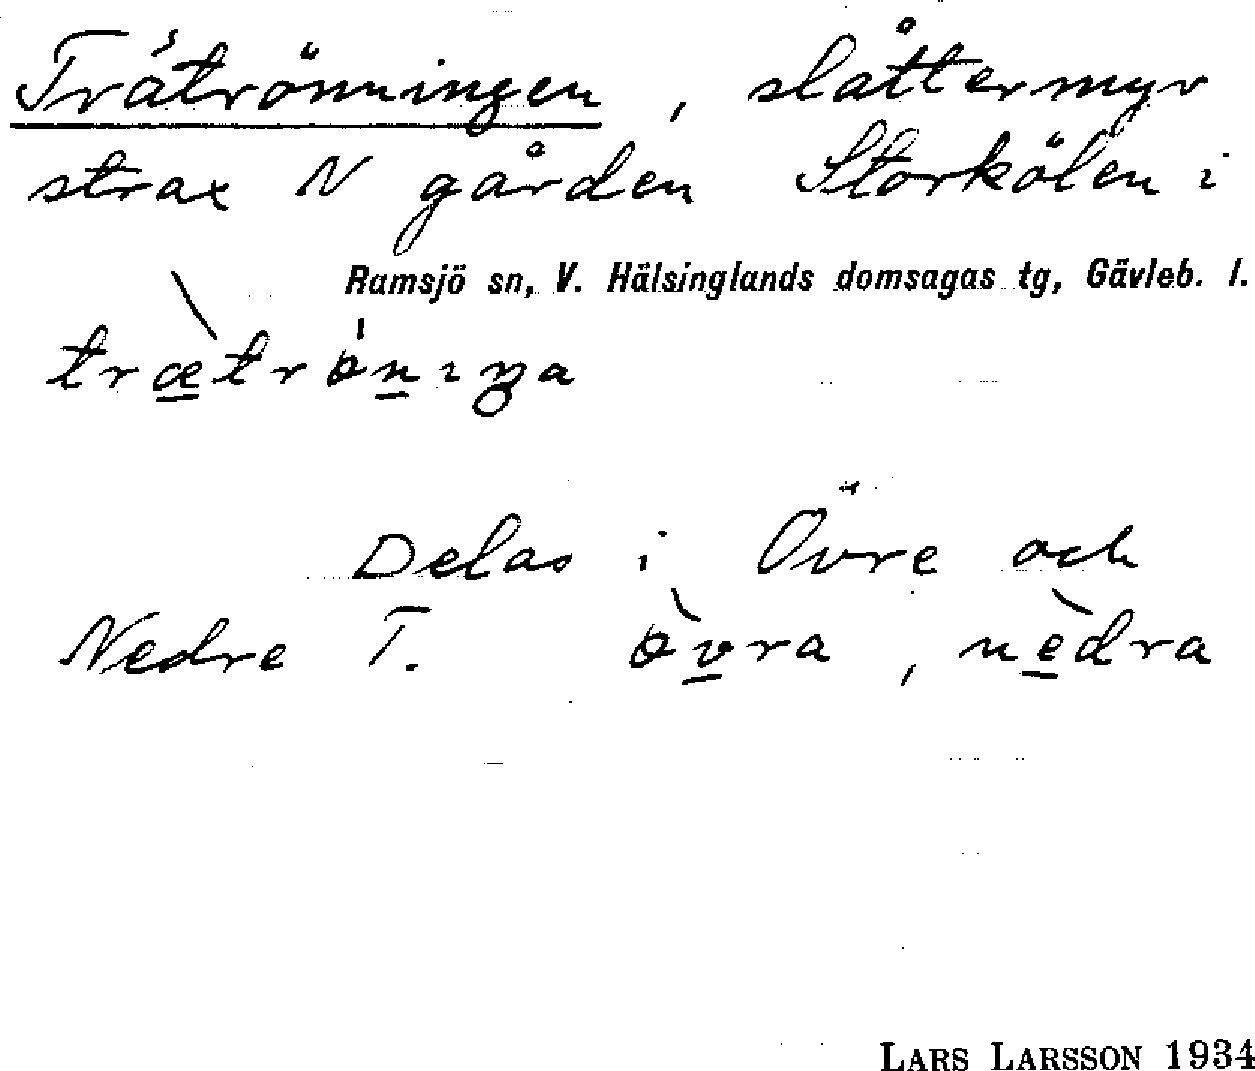 Trätrönningen, slåttermyr
strax N gården Storkölen i
Ramsjö sn, V. Hälsinglands domsagas tg, Gävleb. l.
træ̀trönıŋa
Delas i Övre och
Nedre T. ö̀vra, nèdra
LARS LARSSON 1934